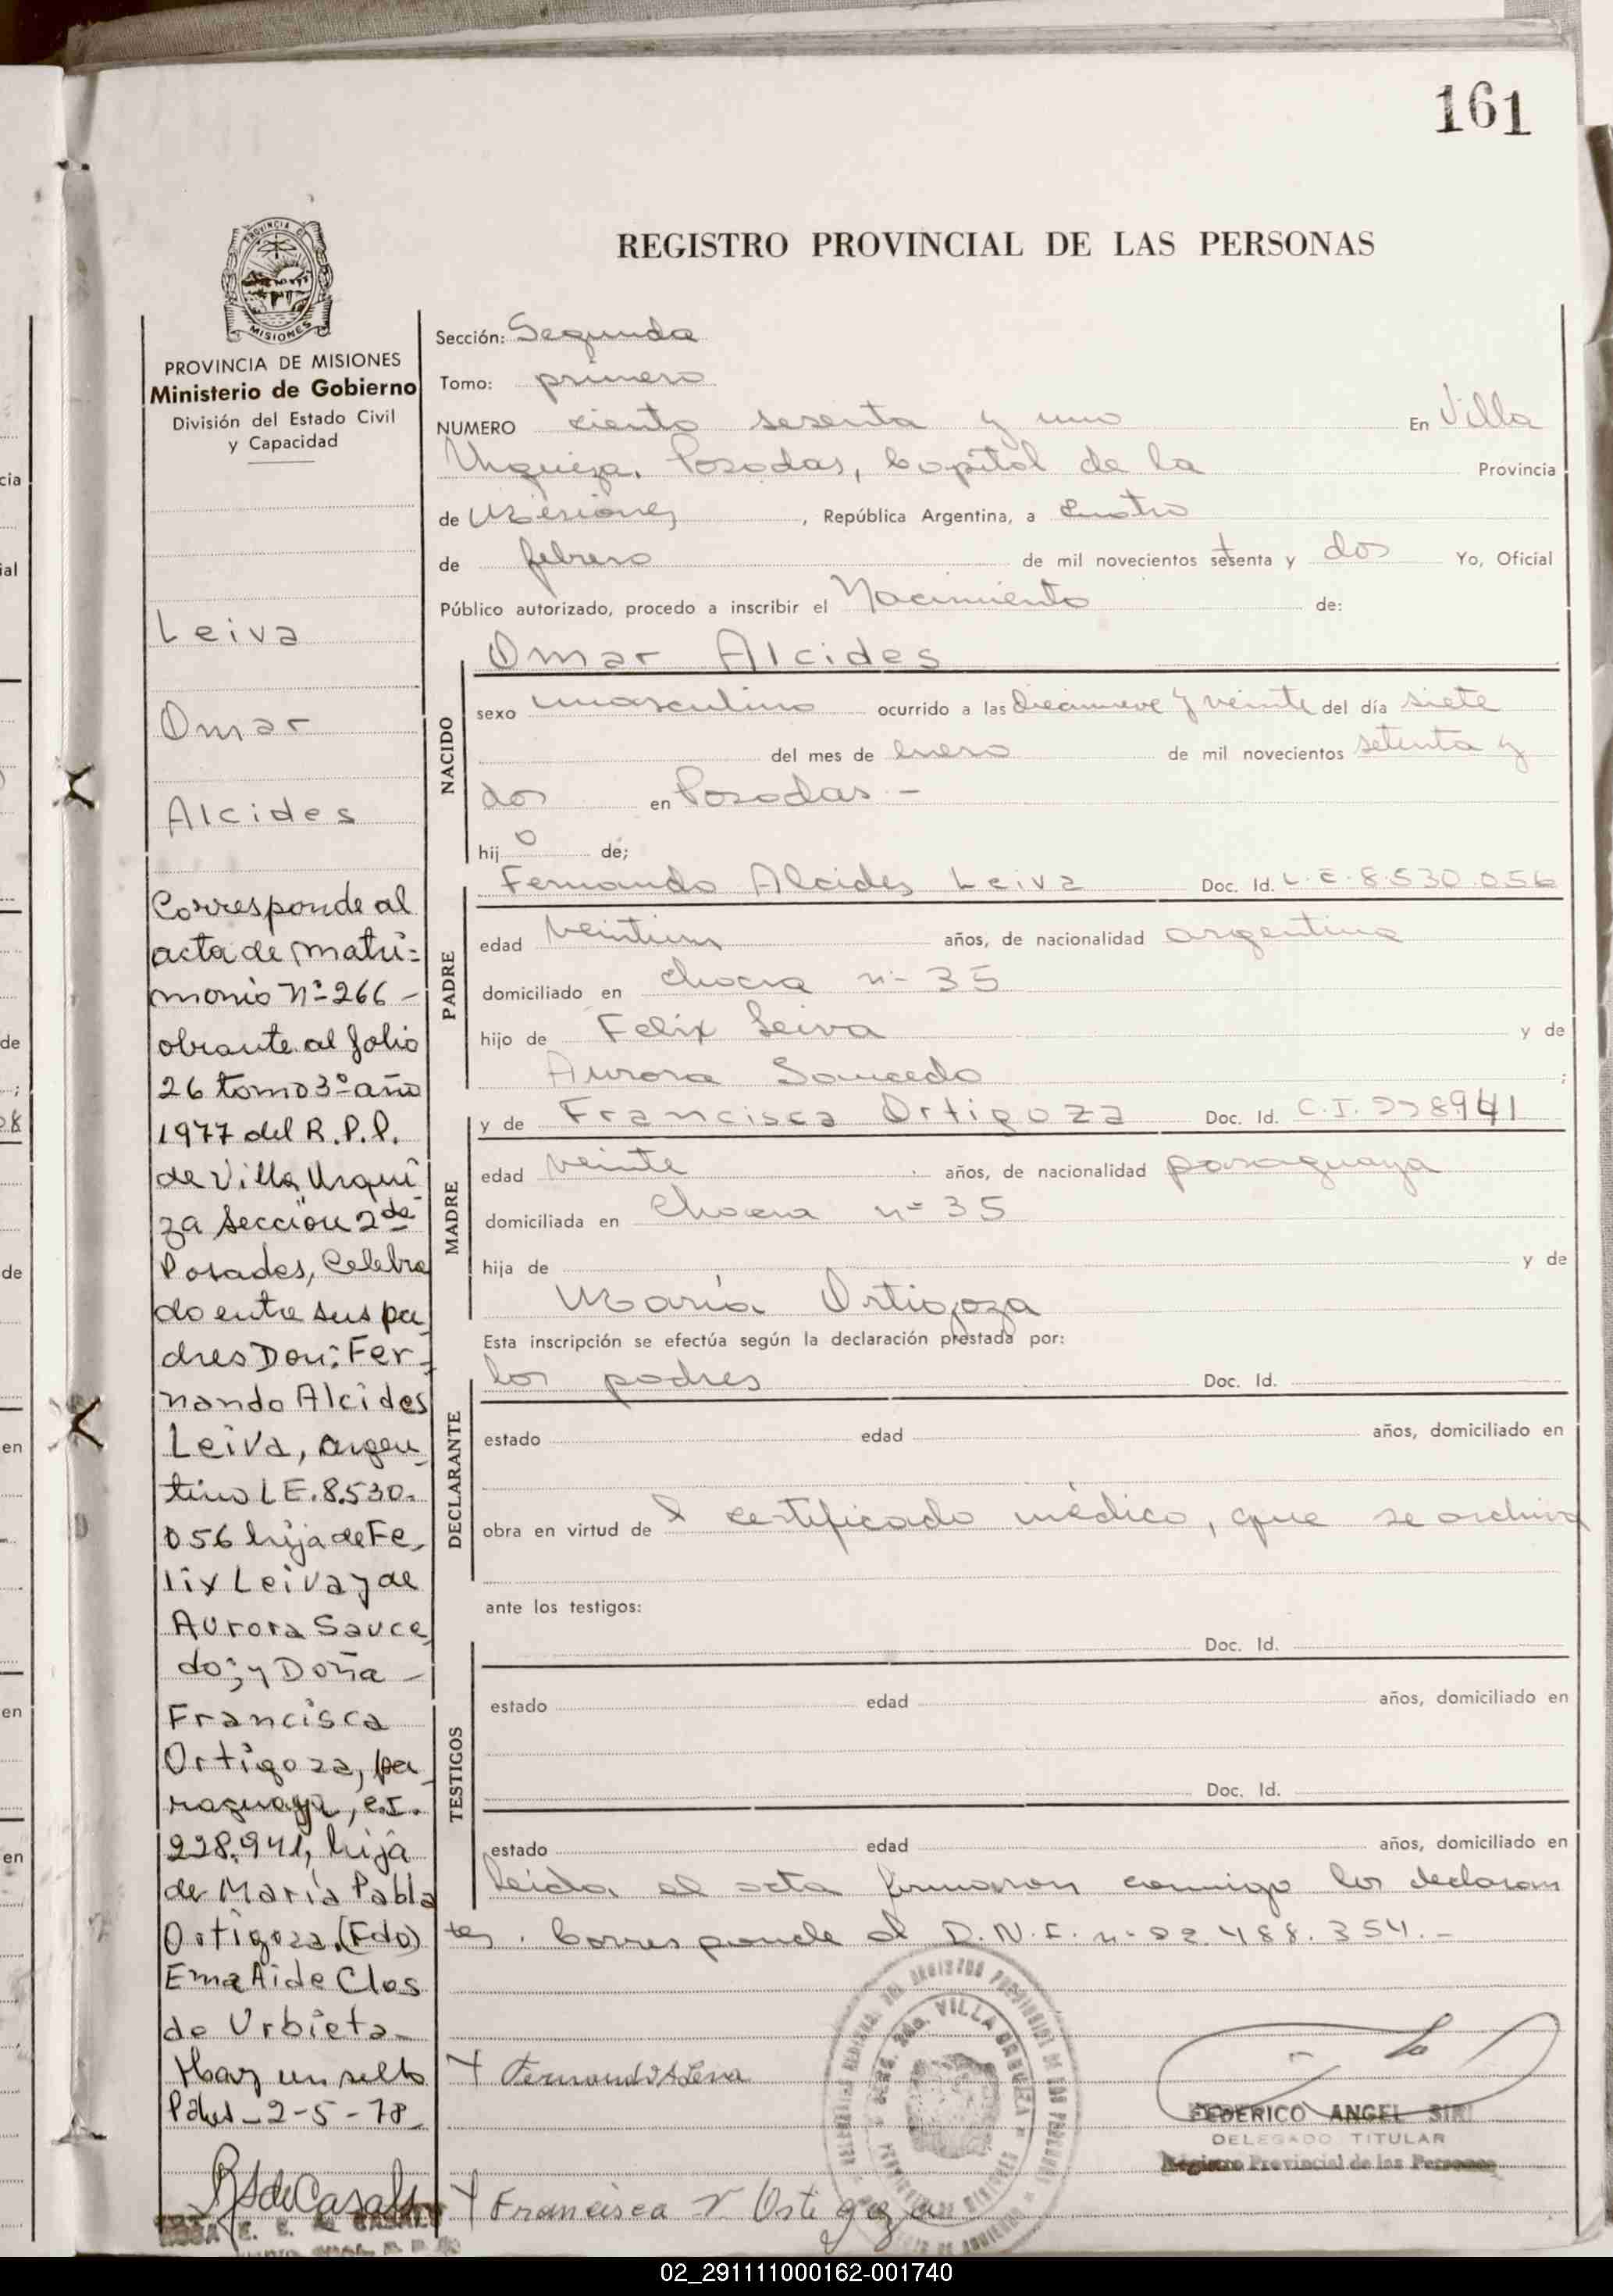 161
REGISTRO PROVINCIAL DE LAS PERSONAS
PROVINCIA DE MISIONES
Ministerio de Gobierno
División del Estado Civil
y Capacidad
Leiva
Omar
Alcides
Corresponde al
acta de matri=
monio Nº 266 -
obrante al folio
26 tomo 3º año
1977 del R.P.P.
de Villa Urqui
za Sección 2da
Posadas, Celebra
do entre sus pa
dres Don: Fer-
nando Alcides
Leiva, argen
tino L E. 8.530.
056 hijo de Fe
lix Leiva y de
Aurora Sauce
do; y Doña -
Francisca
Ortigoza, pa
raguaya, C.I.
228.941, hija
de María Pabla
Ortigoza. (Fdo)
Ema Aide Clos
de Urbieta -
Hay un sello
Pdas - 2-5-78
Sección: Segunda
Tomo: primero
NUMERO ciento sesenta y uno En Villa
Urquiza, Posadas, Capital de la Provincia
de Misiones, República Argentina, a cuatro
de febrero de mil novecientos setenta y dos Yo, Oficial
Público autorizado, procedo a inscribir el Nacimiento de:
Omar Alcides
NACIDO
sexo masculino ocurrido a las diecinueve y veinte del día siete
del mes de enero de mil novecientos setenta y
dos en Posadas -
hijo de;
PADRE
Fernando Alcides Leiva Doc. Id. L.E. 8.530.056
edad veintiun años, de nacionalidad argentina
domiciliado en chacra nº 35
hijo de Felix Leiva y de
Aurora Saucedo ;
MADRE
y de Francisca Ortigoza Doc. Id. C.I. 228941
edad veinte años, de nacionalidad paraguaya
domiciliada en chacra nº 35
hija de y de
María Ortigoza
Esta inscripción se efectúa según la declaración prestada por:
DECLARANTE
los padres Doc. Id.
estado edad años, domiciliado en
obra en virtud de l certificado médico, que se archiva
ante los testigos:
TESTIGOS
Doc. Id.
estado edad años, domiciliado en
Doc. Id.
estado edad años, domiciliado en
Leida el acta firmaron conmigo los declaran
tes. Corresponde al D.N.I. nº 22.488.354.-
Fernando A Leiva
FEDERICO ANGEL SIRI
DELEGADO TITULAR
Registro Provincial de las Personas
Francisca Ortigoza
02_291111000162-001740